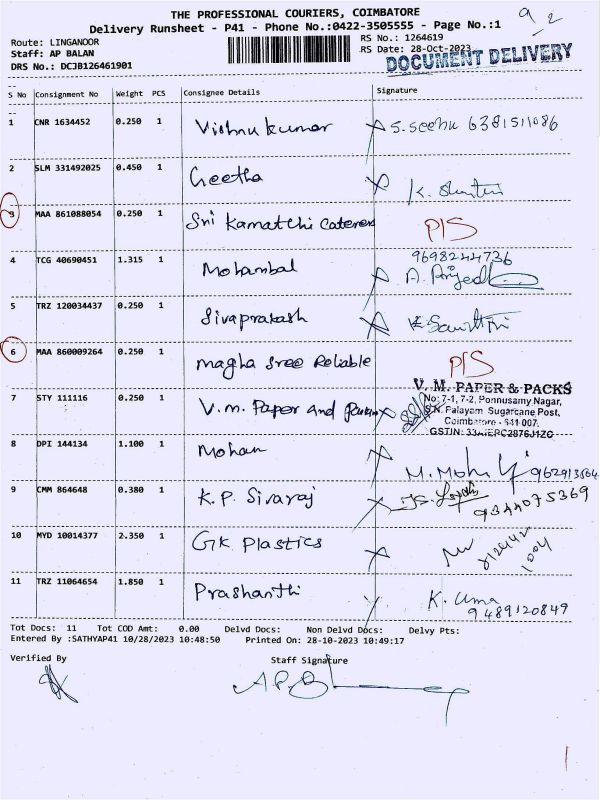 THE PROFESSIONAL COURIERS, COIMBATORE
9/2
Delivery Runsheet - P41 - Phone No.:0422-3505555 - Page No.:1
Route: LINGANOOR
RS No.: 1264619
Staff: AP BALAN
RS Date: 28-Oct-2023
DRS No.: DCJB126461901
DOCUMENT DELIVERY
S No Consignment No Weight PCS Consignee Details Signature
1 CNR 1634452 0.250 1 Vishnu kumar S. Seenu 6381511086
2 SLM 331492025 0.450 1 Geetha K.
3 MAA 861088054 0.250 1 Sri Kamatchi Caterers P/S
4 TCG 40690451 1.315 1 Mohambal 9698244736
A.
5 TRZ 120034437 0.250 1 Sivaprakash K. Savithri
6 MAA 860009264 0.250 1 Magha Sree Reliable P/S
V. M. PAPER & PACKS
7 STY 111116 0.250 1 V.M. Paper and
No: 7-1, 7-2, Ponnusamy Nagar,
S.N. Palayam, Sugarcane Post,
Coimbatore - 641 007.
GSTIN: 33AIEPC2876J1ZG
8 DPI 144134 1.100 1 Mohan M. Moha
9 CMM 864648 0.380 1 K.P. Sivaraj 9344075369
10 MYD 10014377 2.350 1 GK Plastics
1004
11 TRZ 11064654 1.850 1 Prashanthi K. Uma
9489120849
Tot Docs: 11 Tot COD Amt: 0.00 Delvd Docs: Non Delvd Docs: Delvy Pts:
Entered By :SATHYAP41 10/28/2023 10:48:50 Printed On: 28-10-2023 10:49:17
Verified By Staff Signature